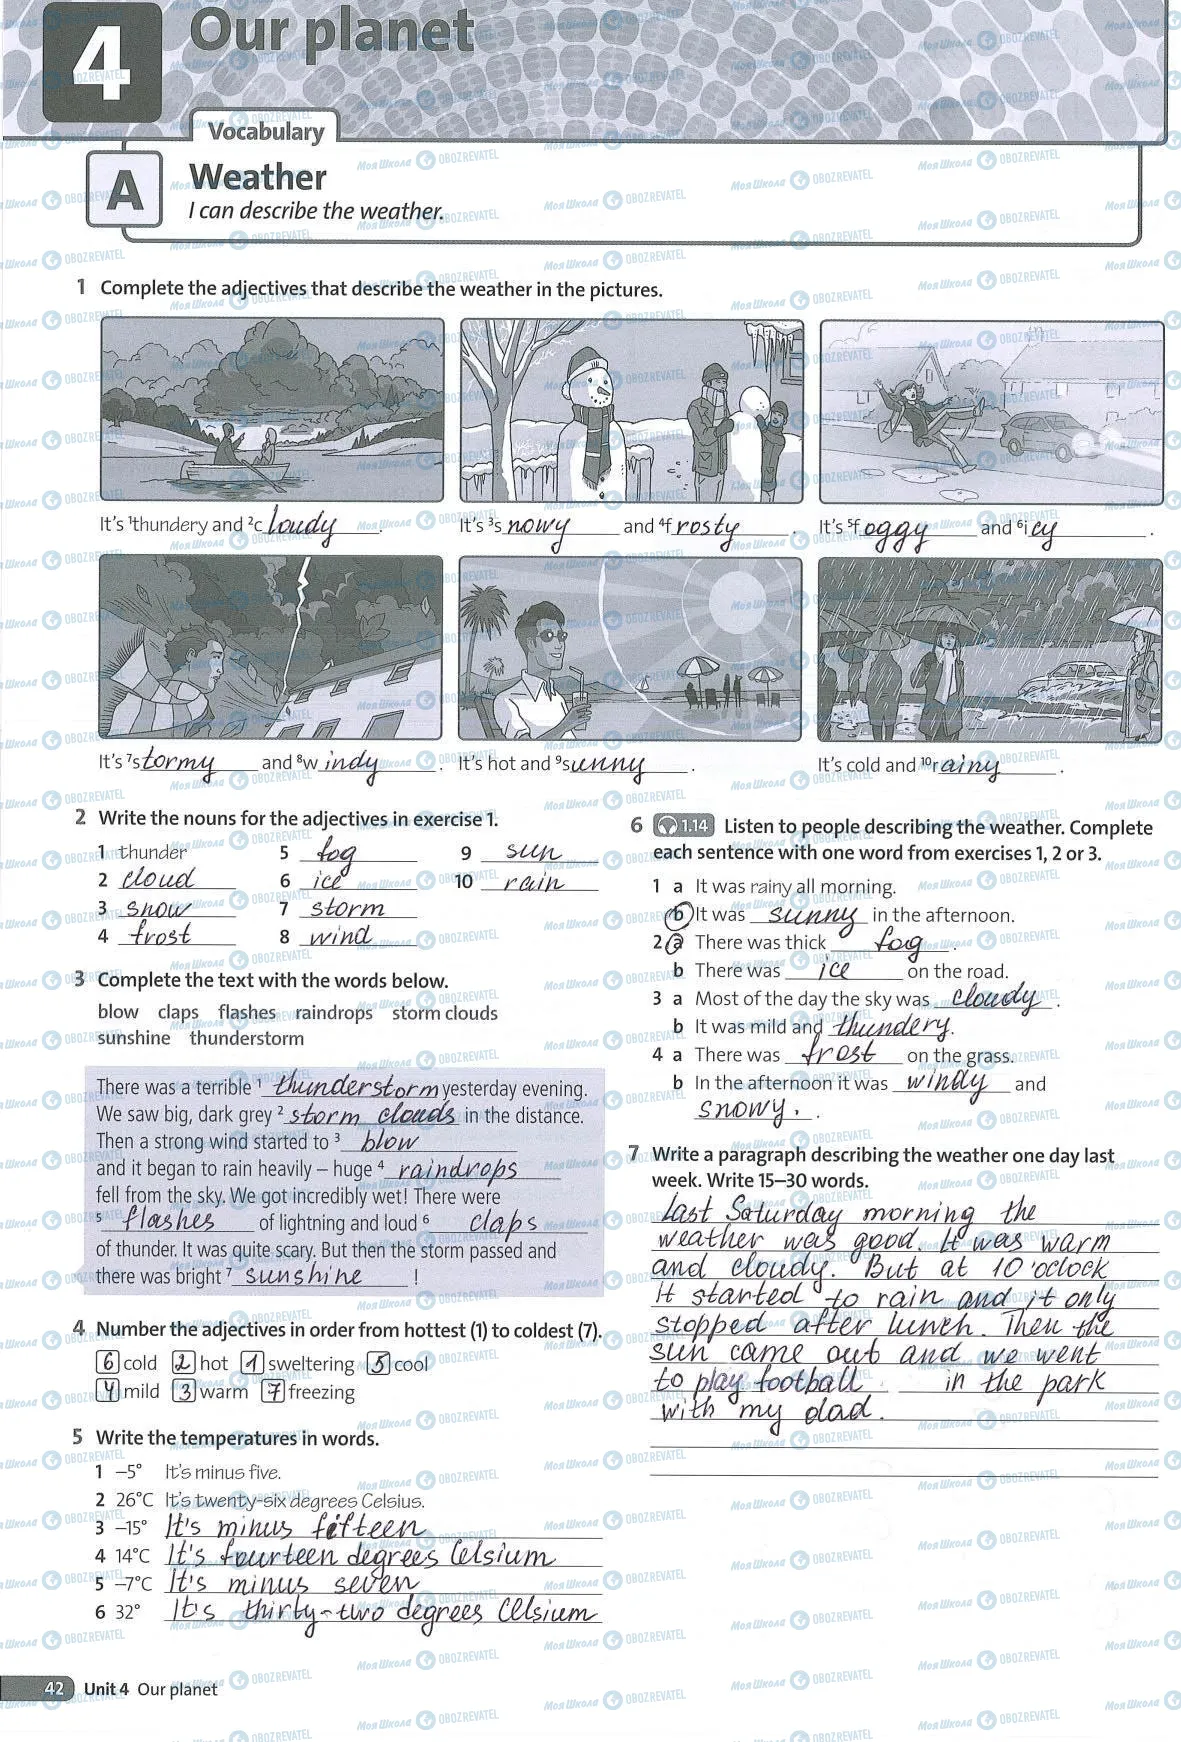 4
Our planet
Vocabulary
A
Weather
I can describe the weather.
1 Complete the adjectives that describe the weather in the pictures.
It's ¹thundery and ²cloudy.
It's ³snowy and ⁴frosty.
It's ⁵foggy and ⁶icy.
It's ⁷stormy and ⁸windy.
It's hot and ⁹sunny.
It's cold and ¹⁰rainy.
2 Write the nouns for the adjectives in exercise 1.
1 thunder 5 fog 9 sun
2 cloud 6 ice 10 rain
3 snow 7 storm
4 frost 8 wind
3 Complete the text with the words below.
blow claps flashes raindrops storm clouds
sunshine thunderstorm
There was a terrible ¹ thunderstorm yesterday evening.
We saw big, dark grey ² storm clouds in the distance.
Then a strong wind started to ³ blow
and it began to rain heavily – huge ⁴ raindrops
fell from the sky. We got incredibly wet! There were
⁵ flashes of lightning and loud ⁶ claps
of thunder. It was quite scary. But then the storm passed and
there was bright ⁷ sunshine !
4 Number the adjectives in order from hottest (1) to coldest (7).
6 cold 2 hot 1 sweltering 5 cool
4 mild 3 warm 7 freezing
5 Write the temperatures in words.
1 –5° It's minus five.
2 26°C It's twenty-six degrees Celsius.
3 –15° It's minus fifteen
4 14°C It's fourteen degrees Celsium
5 –7°C It's minus seven
6 32° It's thirty-two degrees Celsium
6 1.14 Listen to people describing the weather. Complete
each sentence with one word from exercises 1, 2 or 3.
1 a It was rainy all morning.
b It was sunny in the afternoon.
2 a There was thick fog.
b There was ice on the road.
3 a Most of the day the sky was cloudy.
b It was mild and thundery.
4 a There was frost on the grass.
b In the afternoon it was windy and
snowy. .
7 Write a paragraph describing the weather one day last
week. Write 15–30 words.
Last Saturday morning the
weather was good. It was warm
and cloudy. But at 10 'oclock
it started to rain and it only
stopped after lunch. Then the
sun came out and we went
to play football in the park
with my dad.
42 Unit 4 Our planet
Моя Школа OBOZREVATEL